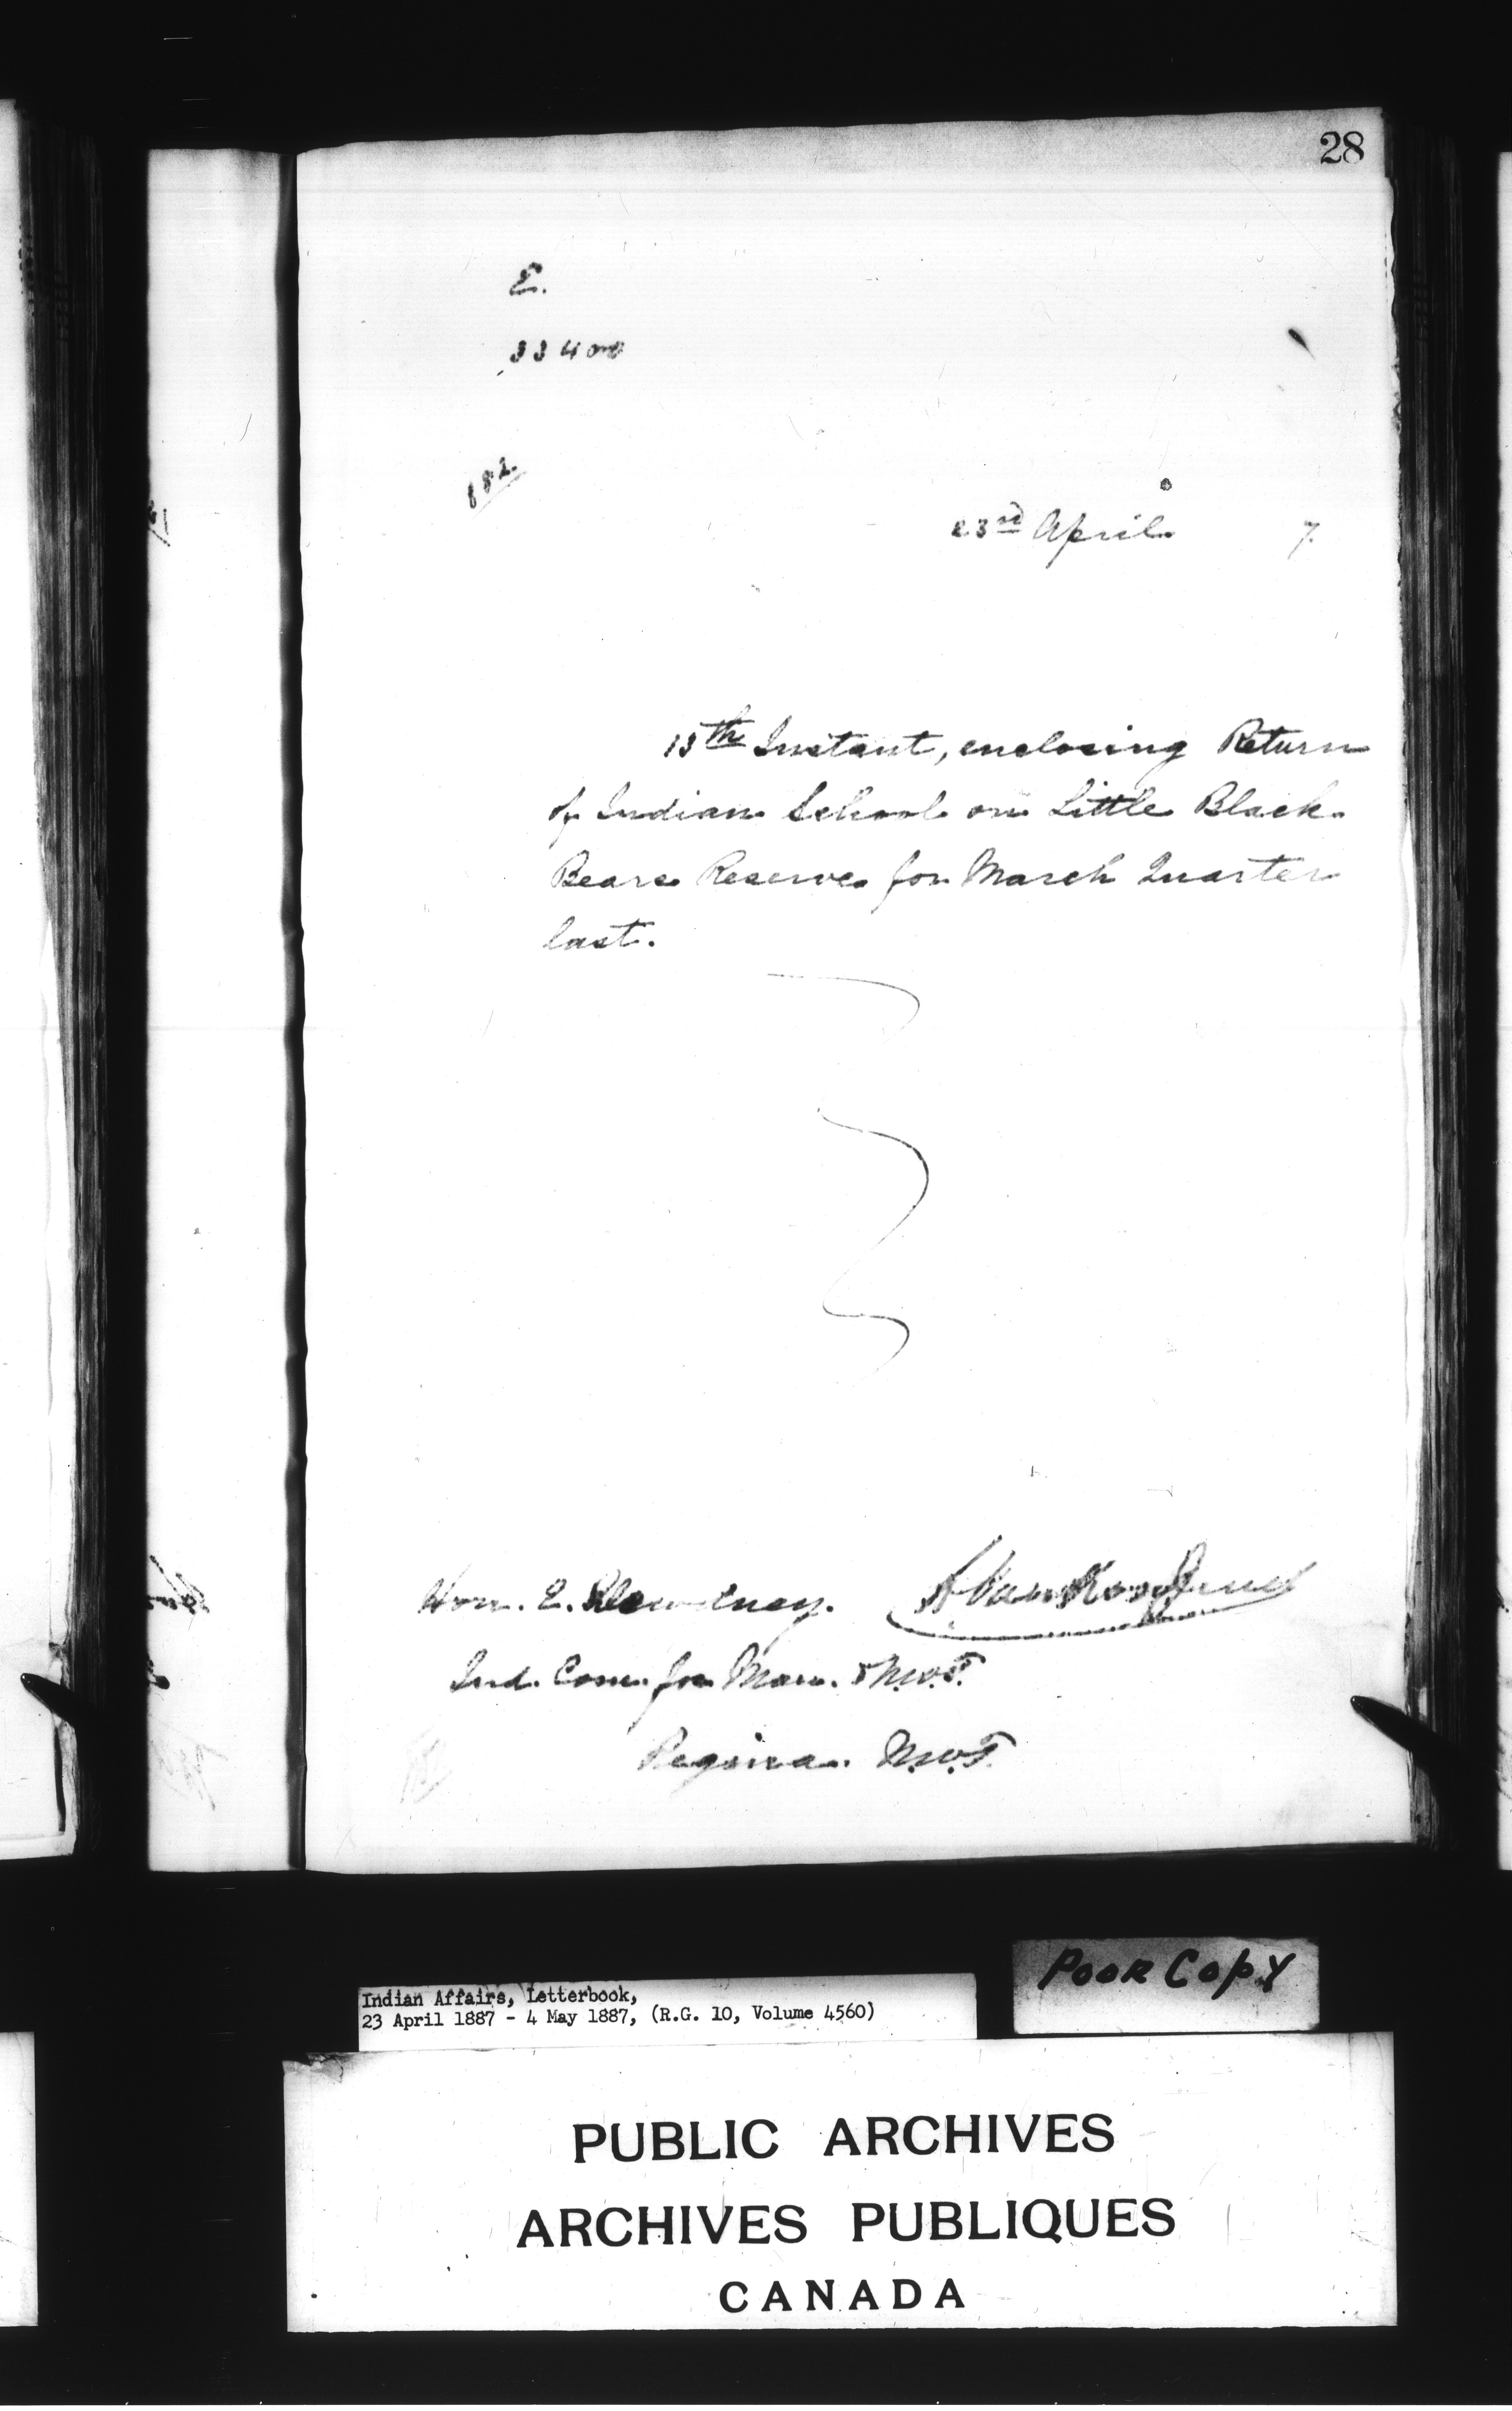 28
E.
33400
182
23rd April 7.
13th Instant, enclosing Return
of Indian School on Little Black
Bears Reserve for March Quarter
last.
Hon. E. Dewdney. L. Vankoughnet
Ind. Com. for Man. & N.W.T.
Regina. N.W.T.
Indian Affairs, Letterbook,
23 April 1887 - 4 May 1887, (R.G. 10, Volume 4560)
POOR COPY
PUBLIC ARCHIVES
ARCHIVES PUBLIQUES
CANADA